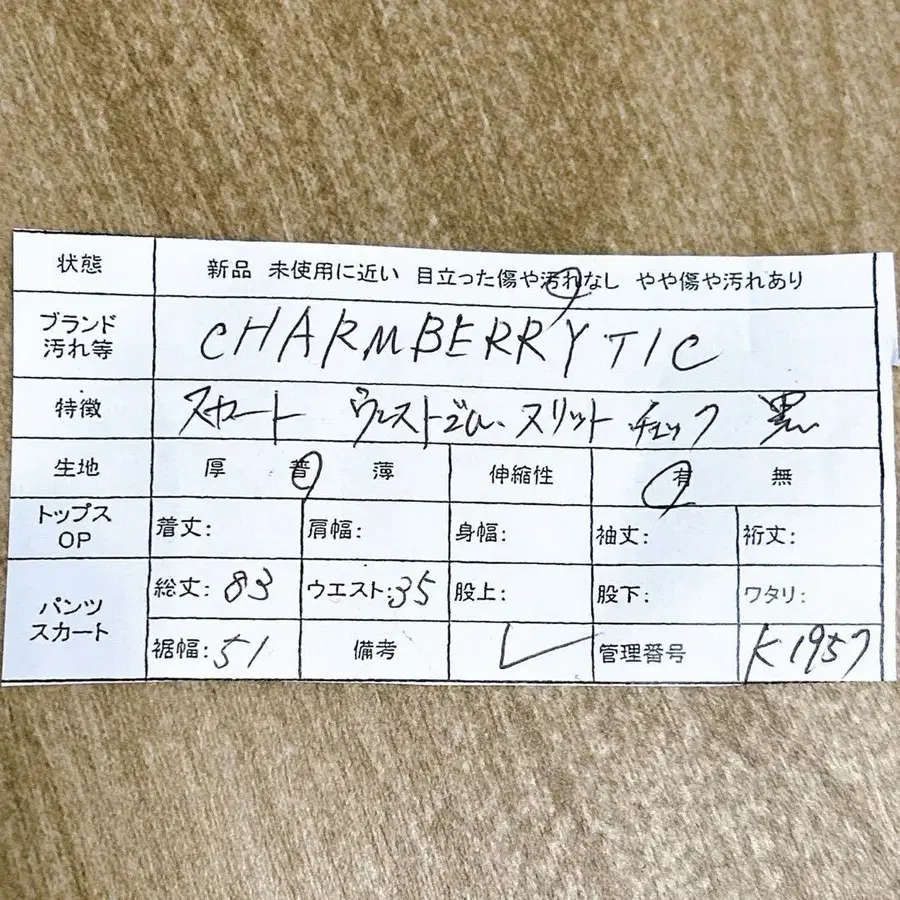 状態 新品 未使用に近い 目立った傷や汚れなし やや傷や汚れあり
ブランド CHARMBERRYTIC
汚れ等
特徴 スカート ウエストゴム スリット チェック 黒
生地 厚 普 薄 伸縮性 有 無
トップス 着丈: 肩幅: 身幅: 袖丈: 裄丈:
OP
パンツ 総丈: 83 ウエスト: 35 股上: 股下: ワタリ:
スカート 裾幅: 51 備考 管理番号 K1957